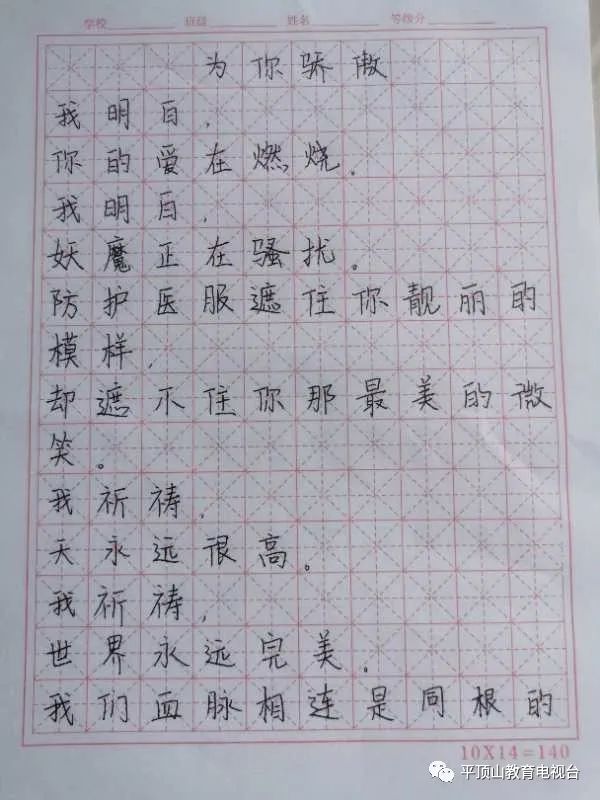 学校 班级 姓名 等级分
为你骄傲
我明白，
你的爱在燃烧。
我明白，
妖魔正在骚扰。
防护医服遮住你靓丽的
模样，
却遮不住你那最美的微
笑。
我祈祷，
天永远很高。
我祈祷，
世界永远完美。
我们血脉相连是同根的
10X14=140
平顶山教育电视台